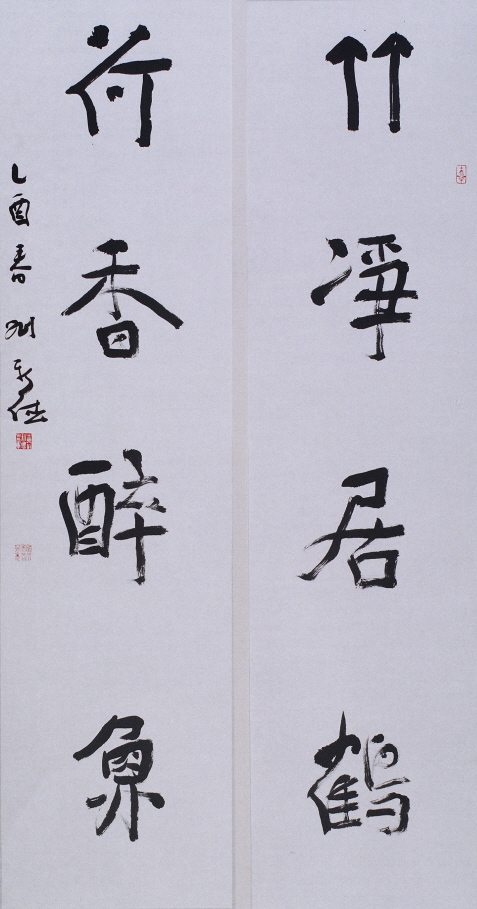 竹淨居鶴
荷香醉魚
乙酉春 刘新德